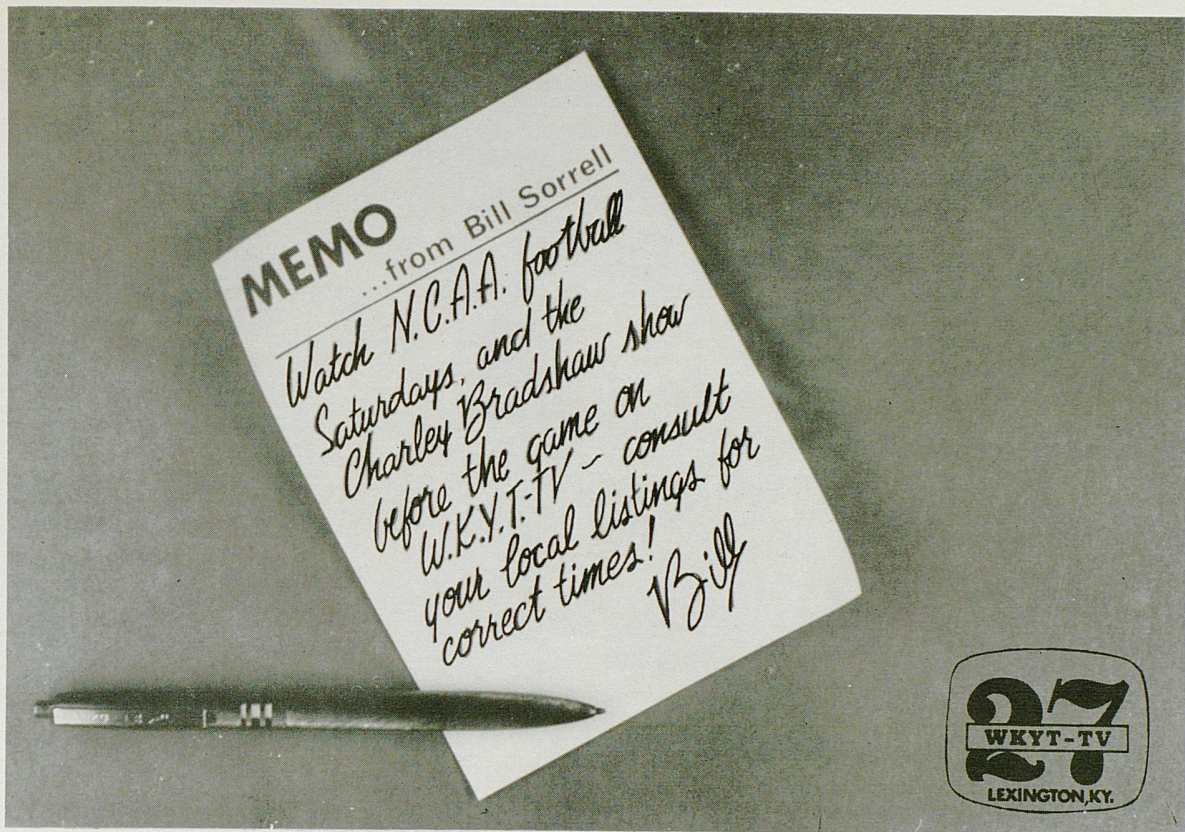 MEMO
...from Bill Sorrell
Watch N.C.A.A. football
Saturdays, and the
Charley Bradshaw show
before the game on
W.K.Y.T.-TV - consult
your local listings for
correct times!
Bill
27
WKYT-TV
LEXINGTON, KY.